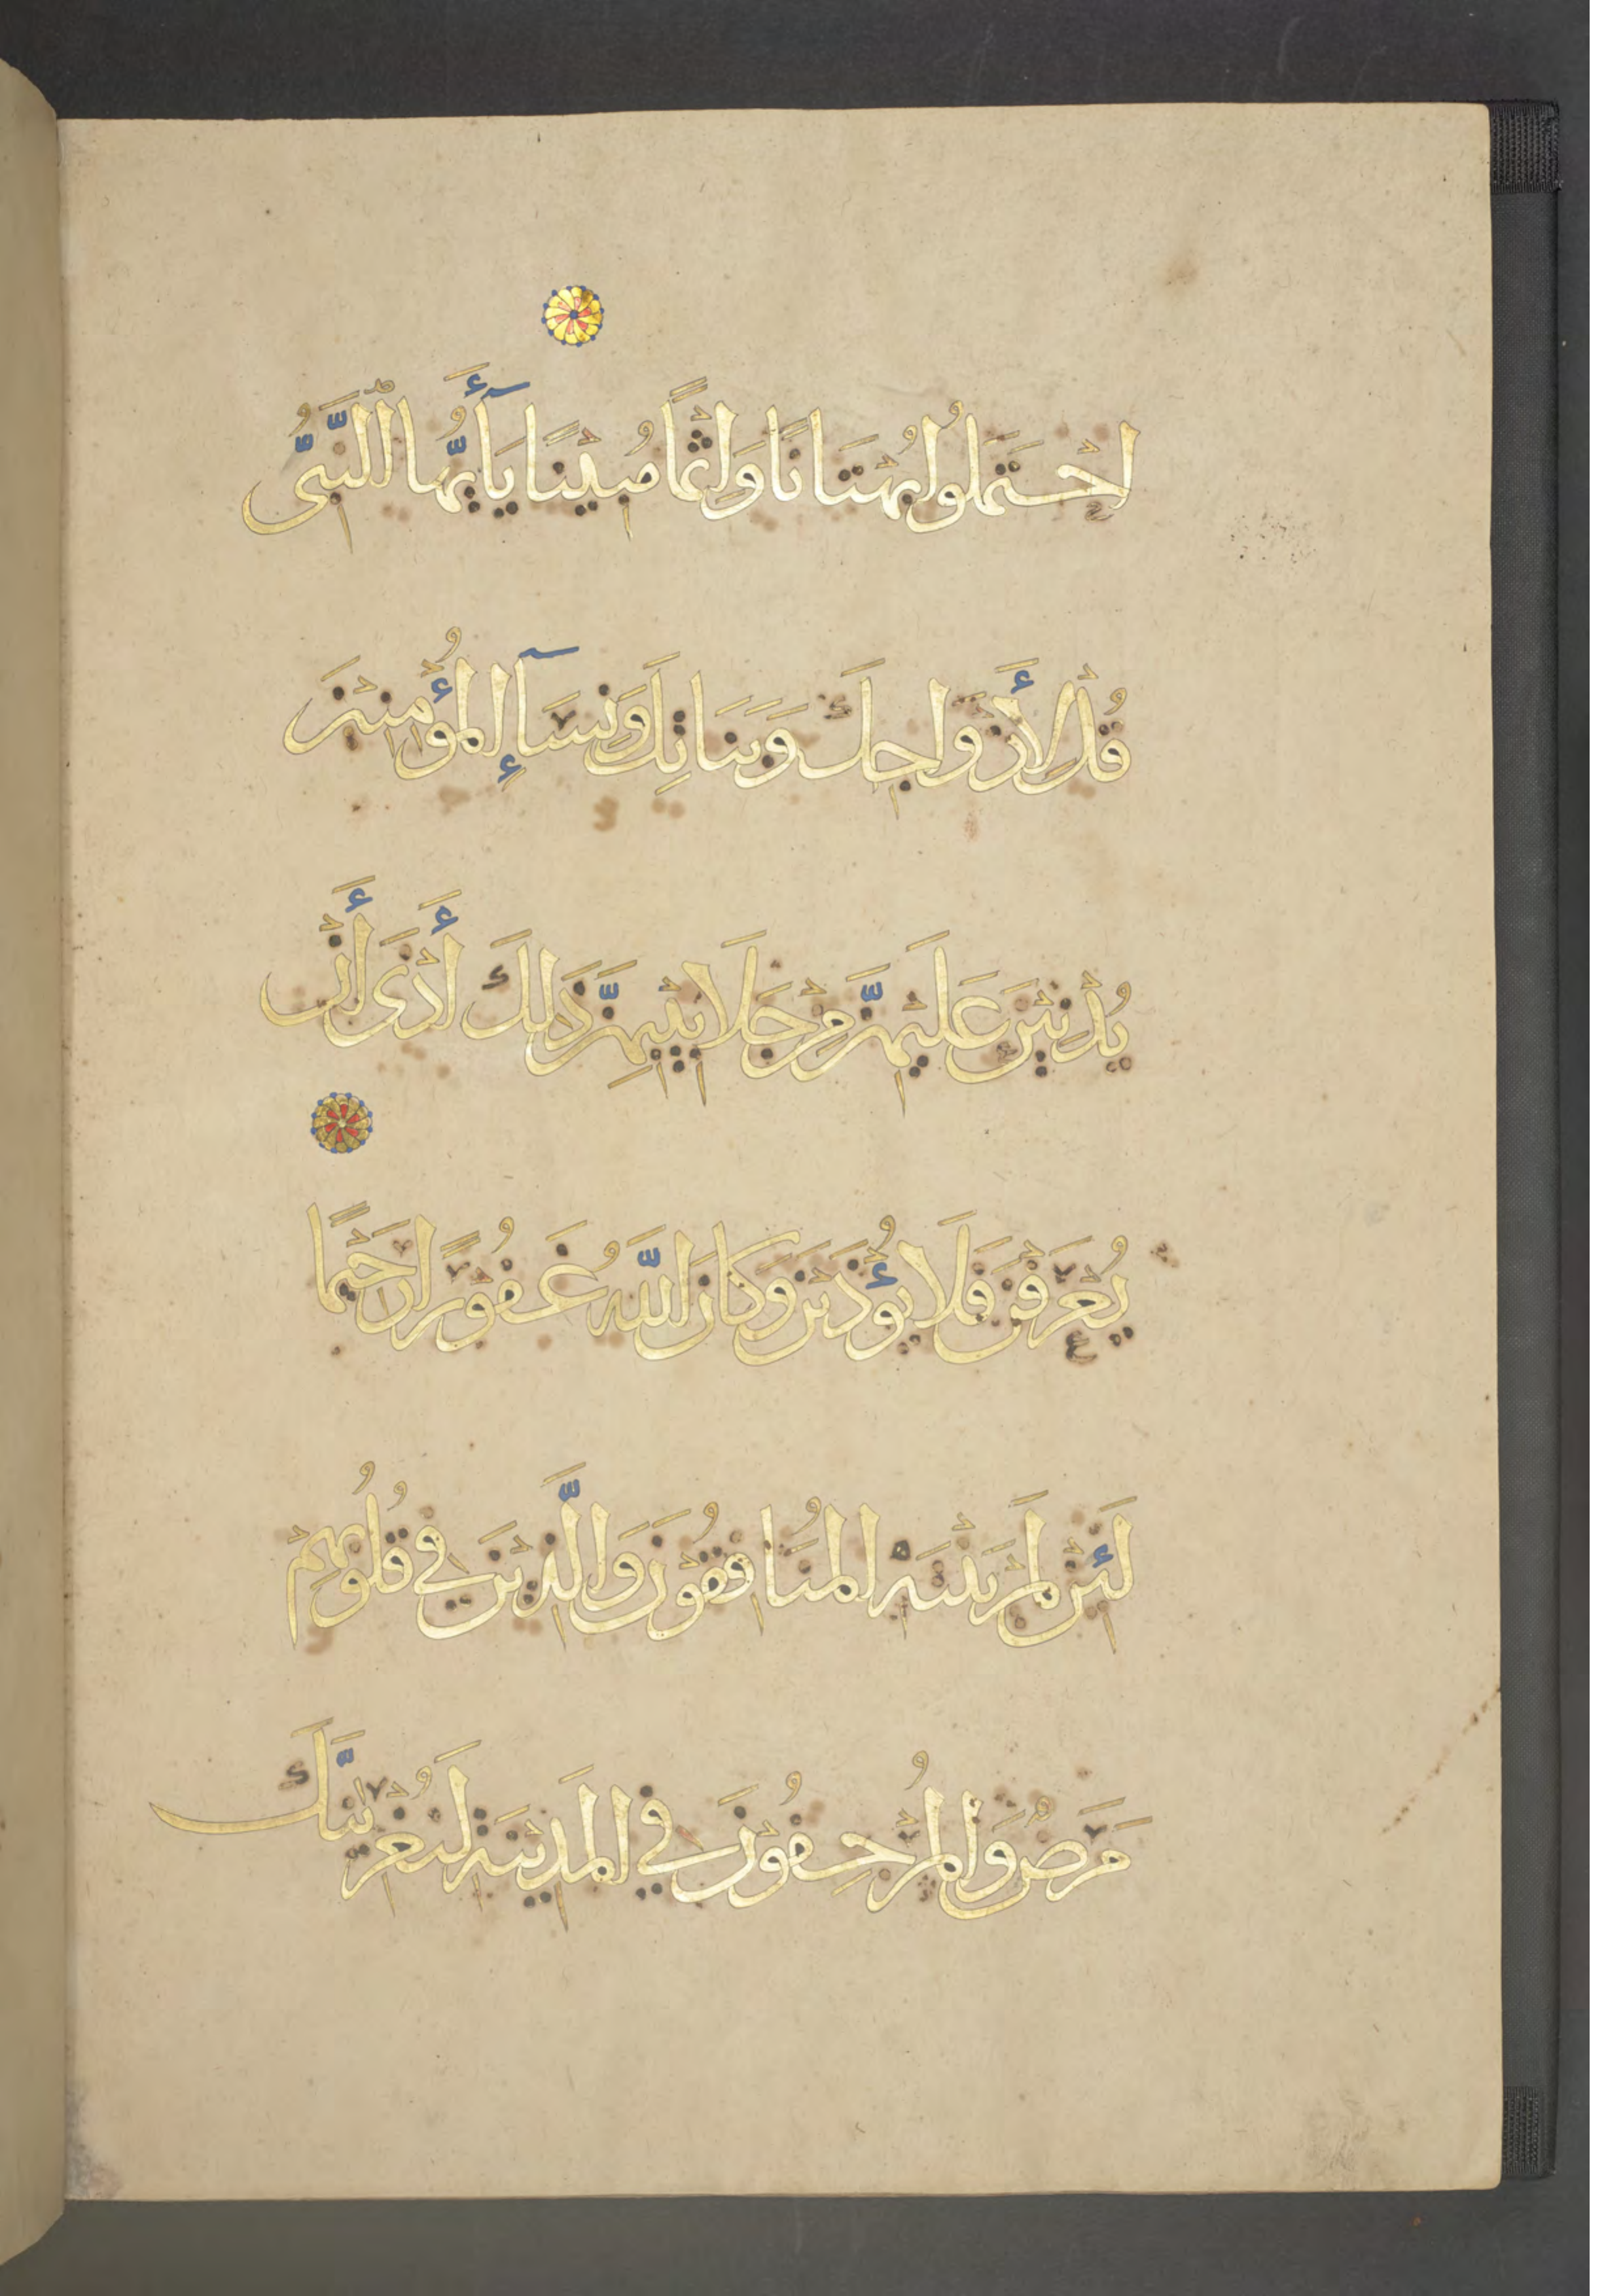 اِحْتَمَلُوا بُهْتَانًا وَإِثْمًا مُبِيْنًا يَآأَيُّهَا النَّبِىُّ
قُلْ لِأَزْوَاجِكَ وَبَنَاتِكَ وَنِسَآءِ المُؤْمِنِيْنَ
يُدْنِيْنَ عَلَيْهِنَّ مِنْ جَلَابِيْبِهِنَّ ذَلِكَ أَدْنَى أَنْ
يُعْرَفْنَ فَلَا يُؤْذَيْنَ وَكَانَ اللَّهُ غَفُوْرًا رَحِيْمًا
لَئِنْ لَمْ يَنْتَهِ المُنَافِقُوْنَ وَالَّذِيْنَ فِي قُلُوْبِهِمْ
مَرَضٌ وَالْمُرْجِفُوْنَ فِي المَدِيْنَةِ لَنُغْرِيَنَّكَ